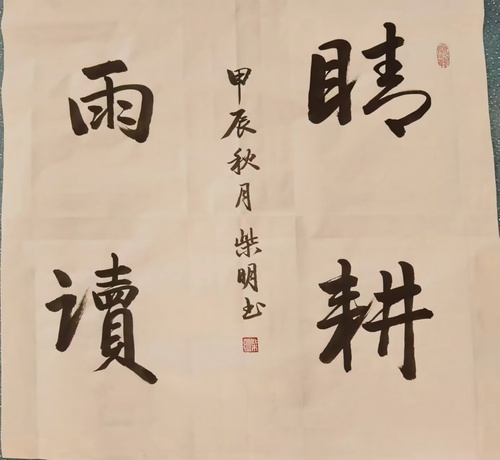 晴耕
雨讀
甲辰秋月 柴明书